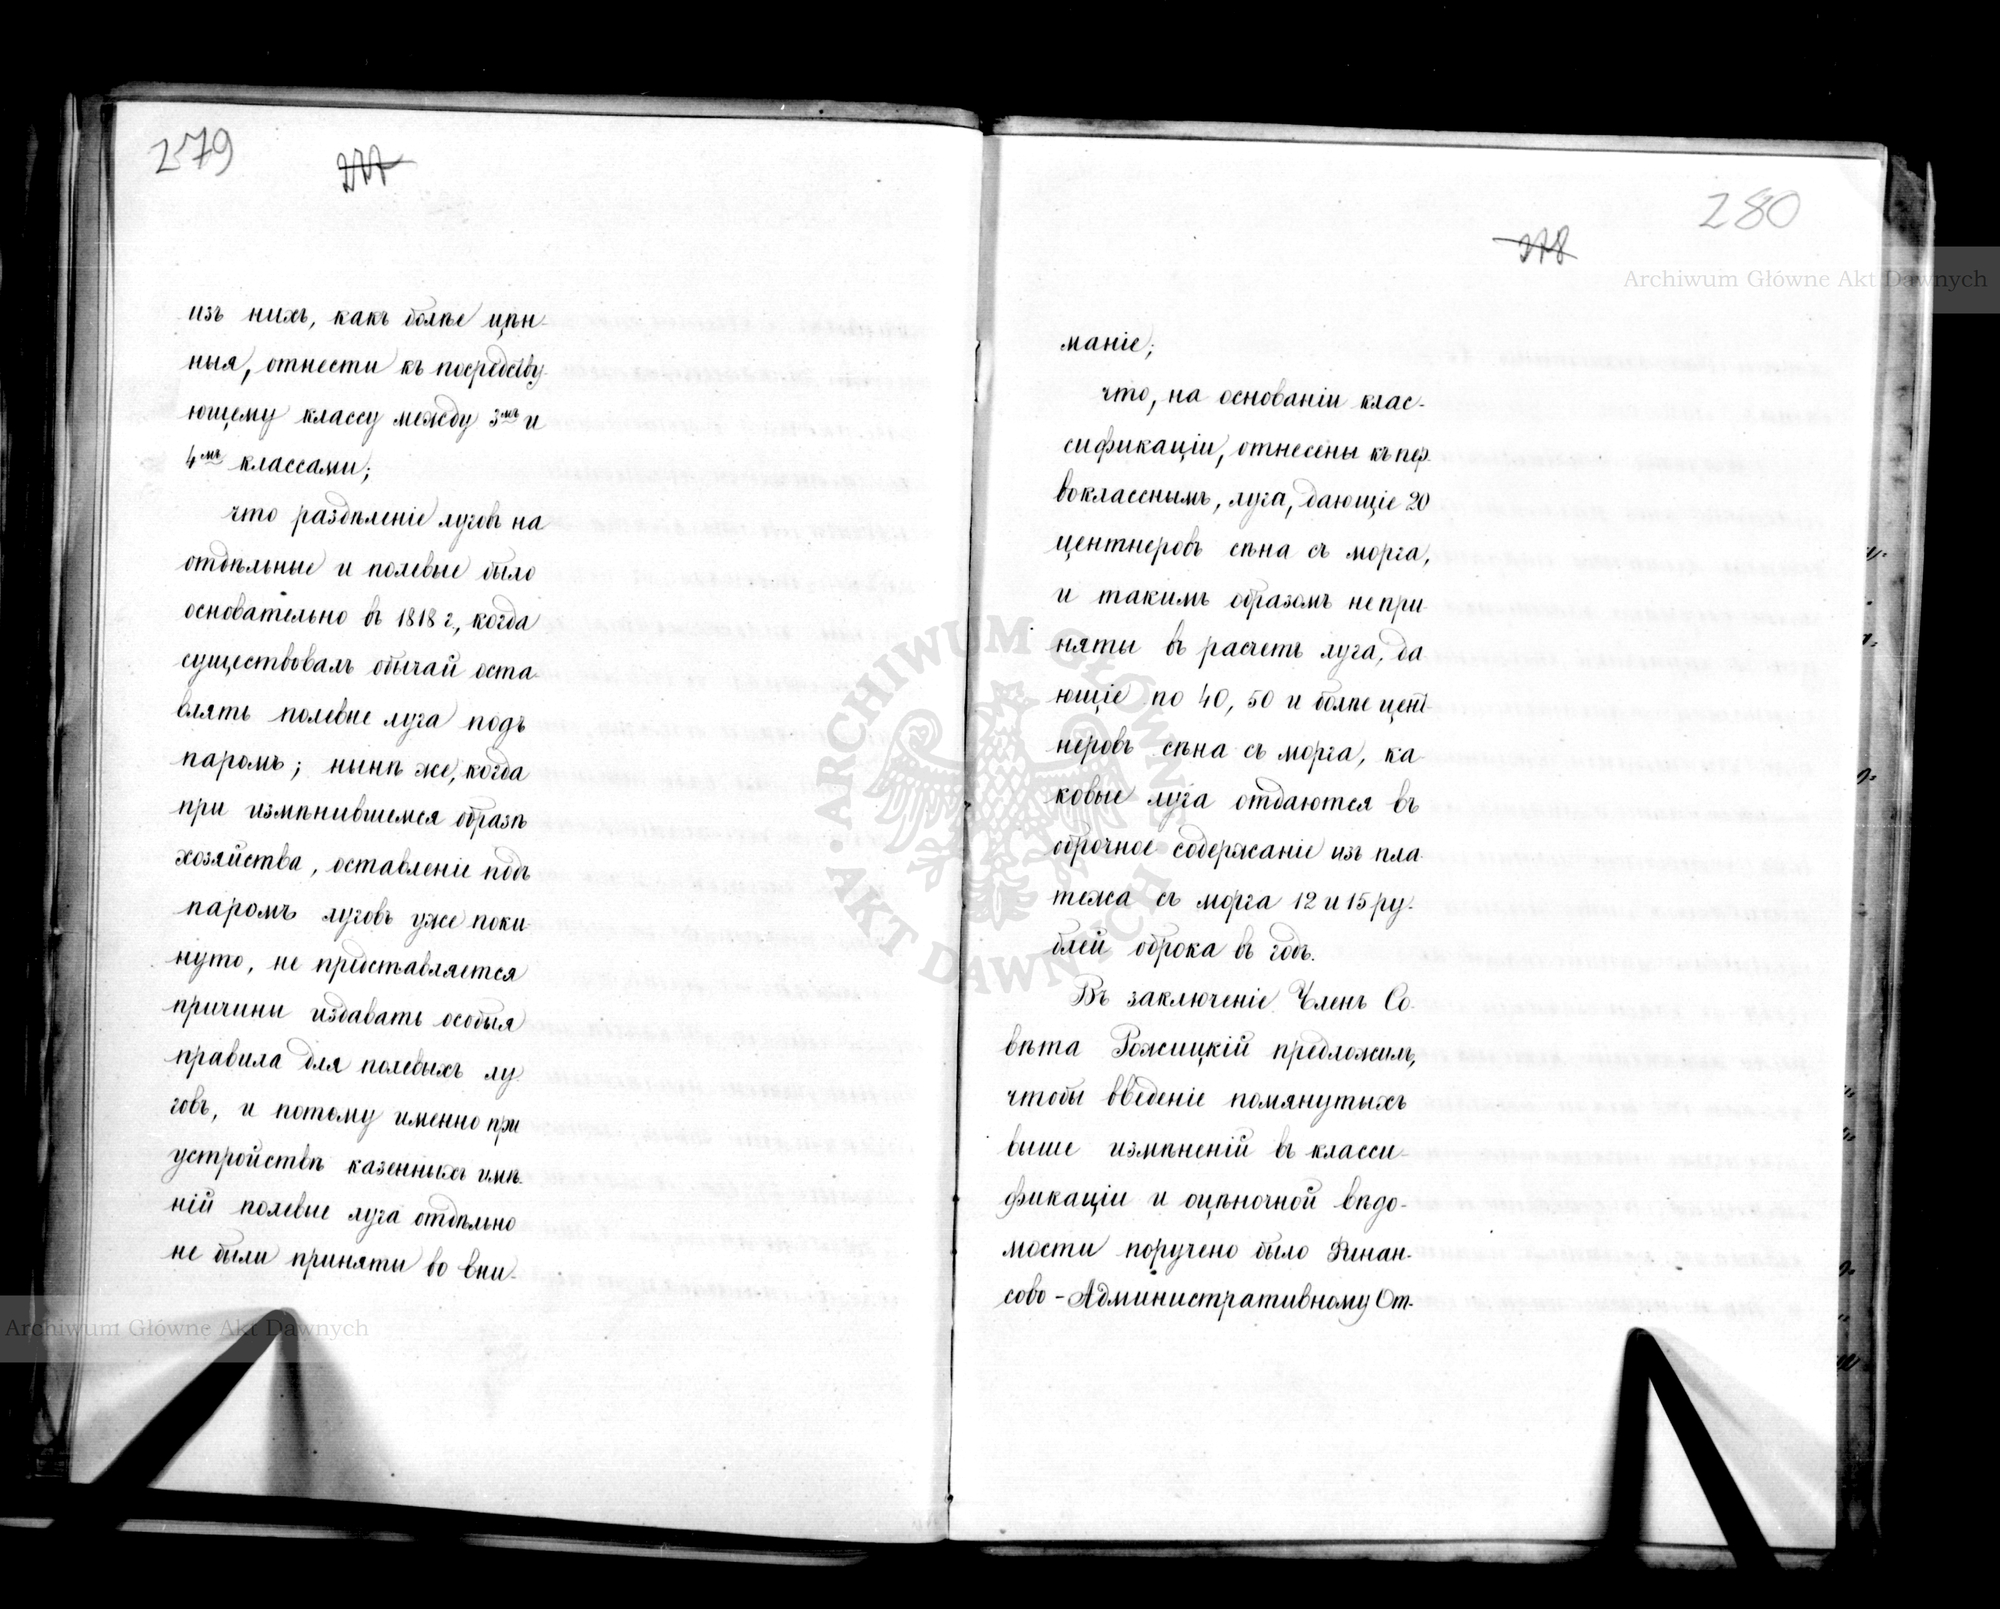 279
277
изъ нихъ, какъ болѣе цѣн-
ныя, отнести къ посредству-
ющему классу между 3мъ и
4мъ классами;
что раздѣленіе луговъ на
отдѣльные и полевые было
основательно въ 1818 г., когда
существовалъ обычай оста-
влять полевые луга подъ
паромъ; нынѣ же, когда
при измѣнившемся образѣ
хозяйства, оставленіе подъ
паромъ луговъ уже поки-
нуто, не представляется
причины издавать особыя
правила для полевыхъ лу-
говъ, и потому именно при
устройствѣ казенныхъ имѣ-
ній полевые луга отдѣльно
не были приняты во вни-
280
278
маніе;
что, на основаніи клас-
сификаціи, отнесены къ пер-
вокласснымъ, луга, дающіе 20
центнеровъ сѣна съ морга,
и такимъ образомъ не при-
няты въ расчетъ луга, да
ющіе по 40, 50 и болѣе цент-
неровъ сѣна съ морга, ка-
ковые луга отдаются въ
оброчное содержаніе изъ пла-
тежа съ морга 12 и 15 ру-
блей оброка въ годъ.
Въ заключеніе Членъ Со-
вѣта Рожицкій предложилъ,
чтобы введеніе помянутыхъ
выше измѣненій въ класси-
фикаціи и оцѣночной вѣдо-
мости поручено было Финан-
сово-Административному От-
Archiwum Główne Akt Dawnych
Archiwum Główne Akt Dawnych
ARCHIWUM GŁÓWNE AKT DAWNYCH